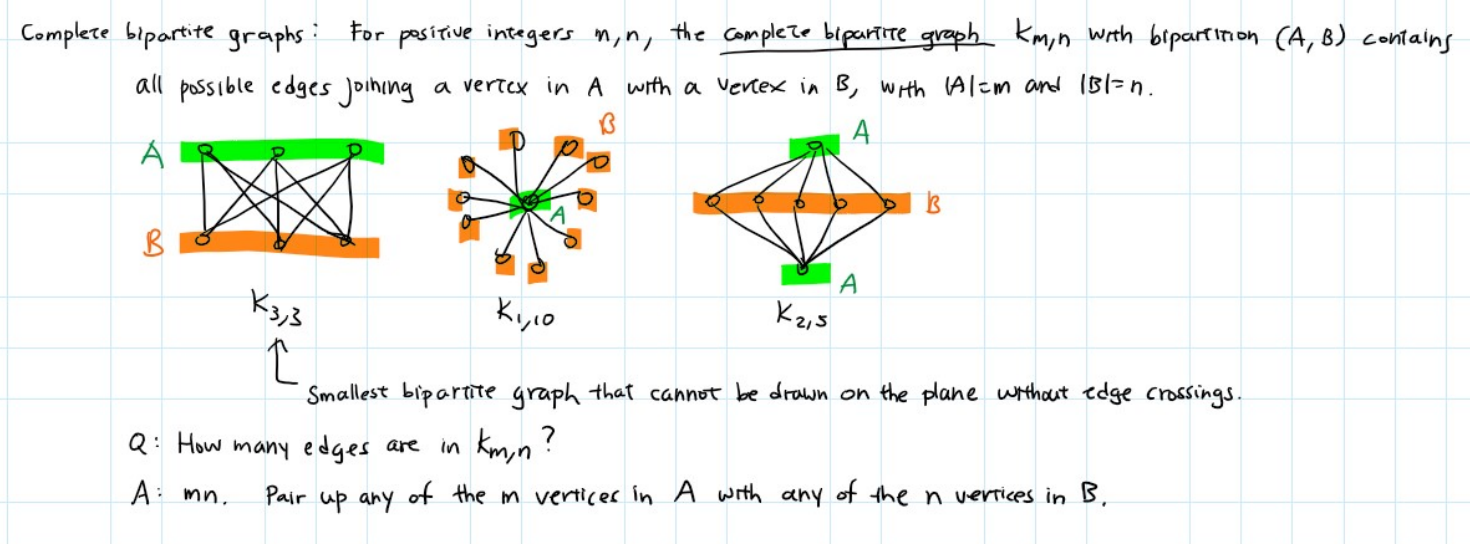 Complete bipartite graphs: For positive integers m,n, the complete bipartite graph Km,n with bipartition (A, B) contains
all possible edges joining a vertex in A with a vertex in B, with |A|=m and |B|=n.
A
B
K3,3
B
A
K1,10
A
B
A
K2,5
Smallest bipartite graph that cannot be drawn on the plane without edge crossings.
Q: How many edges are in Km,n?
A: mn. Pair up any of the m vertices in A with any of the n vertices in B.